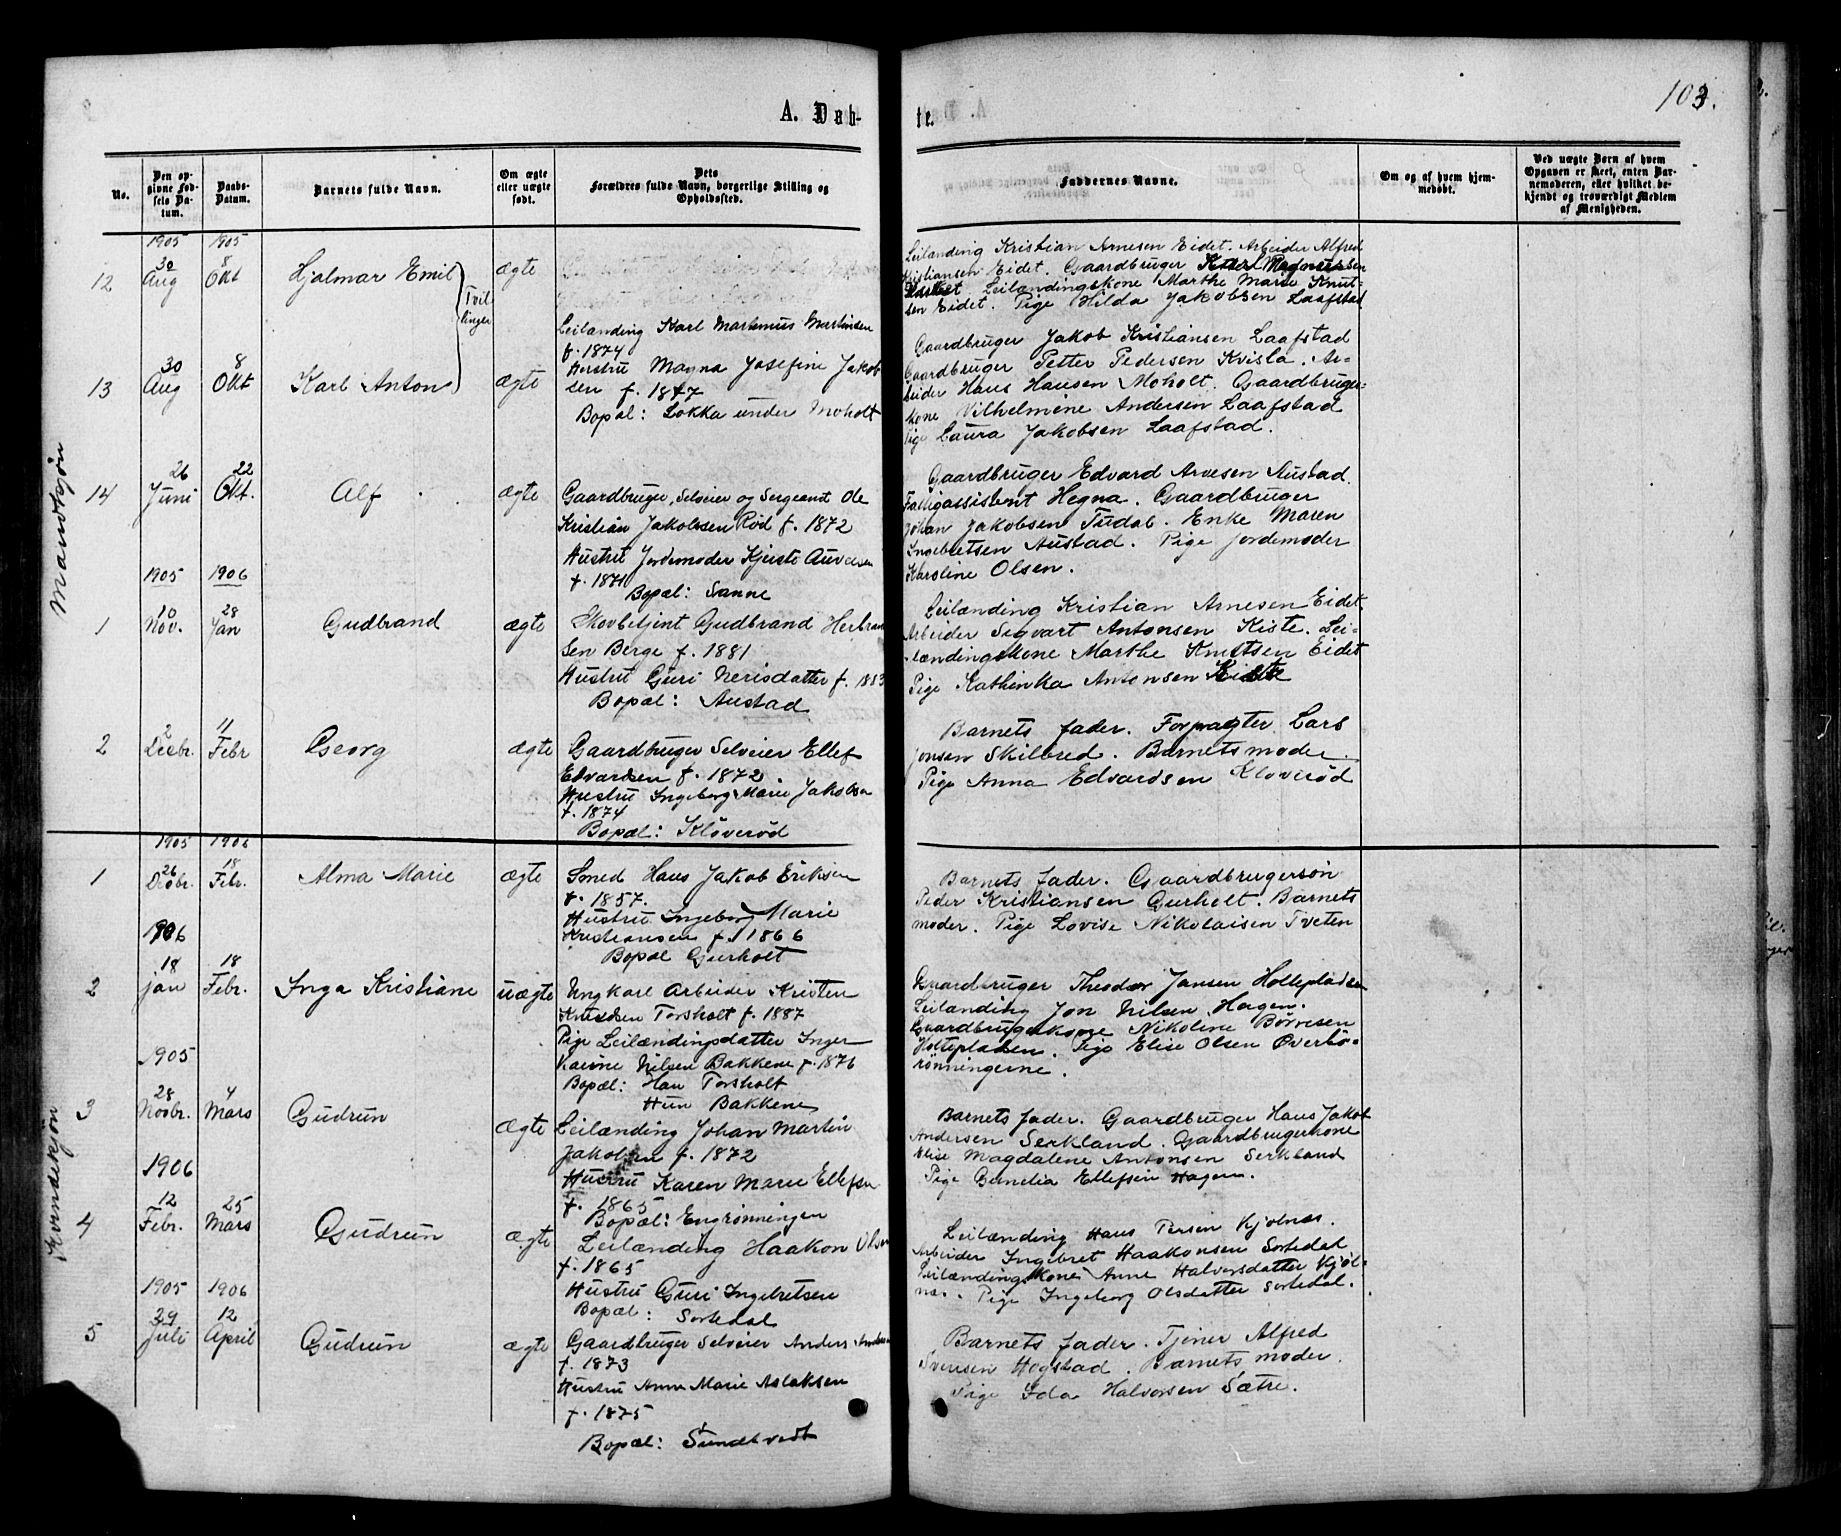 A. Døb-
te.
103.
No.
Den opgivne Fødsels Datum.
Daabs-Datum.
Barnets fulde Navn.
Om ægte eller uægte født.
Dets Forældres fulde Navn, borgerlige Stilling og Opholdssted.
Faddernes Navne.
Om og af hvem hjemmedøbt.
Ved uægte Børn af hvem Opgaven er skeet, enten Barnemoderen, eller hvilket bekjendt og troværdigt Medlem af Menigheden.
Mandkjøn
1905 1905
12
30 Aug
8 Okt
Hjalmar Emil
Tvil-
linger
ægte
Leilænding Kristian Arnesen Eidet. Arbeider Alfred
Kristiansen Eidet. Gaardbruger
Leilændingskone Marthe Marie Knut-
sen Eidet. Pige Hilda Jakobsen Laafstad
13
30 Aug
8 Okt
Karl Anton
ægte
Leilænding Karl Martinus Martinsen
f. 1874
Hustru Magna Josefine Jakob
sen f. 1877
Bopæl: Løkka under Moholt
Gaardbruger Jakob Kristiansen Laafstad
Gaardbruger Petter Pedersen Kvisla. Ar-
beider Hans Hansen Moholt. Gaardbruger-
kone Vilhelmine Andersen Laafstad
Pige Laura Jakobsen Laafstad.
14
26 Juni
22 Okt.
Alf
ægte
Gaardbruger, Selveier og Sergeant Ole
Kristian Jakobsen Rød f. 1872
Hustru Jordemoder Kjersti
f. 1871
Bopæl: Sanne
Gaardbruger Edvard Arvesen Austad.
Fattigassistent Hegna. Gaardbruger
Johan Jakobsen Tudal. Enke Maren
Ingebretsen Austad. Pige Jordemoder
Karoline Olsen.
1905 1906
1
20 Nov.
28 Jan
Gudbrand
ægte
Skovbetjent Gudbrand Herbran
sen Berge f. 1881
Hustru Guri Nerisdatter f. 1883
Bopæl: Austad
Leilænding Kristian Arnesen Eidet.
Arbeider Sigvart Antonsen Kiste. Lei-
lændingskone Marthe Knutsen Eidet
Pige Kathinka Antonsen Kiste
2
2 Decbr.
11 Febr
Georg
ægte
Gaardbruger Selveier Ellef
Edvardsen f. 1872
Hustru Ingeborg Marie Jakobsen
f. 1874
Bopæl: Kløverød
Barnets fader. Forpagter Lars
Jonsen Skilbred. Barnets moder.
Pige Anna Edvardsen Kløverød
Kvindekjøn
1905 1906
1
26 Decbr.
18 Febr.
Alma Marie
ægte
Smed Hans Jakob Eriksen
f. 1857.
Hustru Ingeborg Marie
Kristiansen f. 1866
Bopæl Gjerholt
Barnets fader. Gaardbrugersøn
Peder Kristiansen Gurholt. Barnets
moder. Pige Lovise Nikolaisen Tveten
1906
2
18 jan
18 Febr.
Inga Kristiane
uægte
Ungkarl Arbeider Kristen
Knudsen Torsholt f. 1887
Pige Leilændingsdatter Inger
Karine Nilsen Bakkene f. 1876
Bopæl: Han Torsholt
Hun Bakkene
Gaardbruger Theodor Jansen Holtepladsen
Leilænding Jon Nilsen Hagen.
Gaardbrugerkone Nikoline Børresen
Holtepladsen. Pige Elise Olsen Øverbø-
rønningerne.
1905
3
28 Novbr.
4 Mars
Gudrun
ægte
Leilænding Johan Martin
Jakobsen f. 1872
Hustru Karen Marie Ellefsen
f. 1865
Bopæl: Engrønningen
Barnets fader. Gaardbruger Hans Jakob
Andersen Serkland. Gaardbrugerkone
Elise Magdalene Antonsen Serkland
Pige Ellefsen Hagen.
1906
4
12 Febr.
25 Mars
Gudrun
ægte
Leilænding Haakon Olsen
f. 1865
Hustru Guri Ingebretsen
Bopæl: Sortedal
Leilænding Hans Persen Kjølnæs.
Arbeider Ingebret Haakonsen Sortedal
Leilændingskone Anne Halvorsdatter Kjøl-
næs. Pige Ingeborg Olsdatter Sortedal.
1905 1906
5
29 Juli
12 April
Gudrun
ægte
Gaardbruger Selveier Anders Andersen
f. 1873
Hustru Anne Marie Aslaksen
f. 1875
Bopæl: Sundkvedt
Barnets fader. Tjener Alfred
Svensen Høgstad. Barnets moder.
Pige Ida Halvorsen Sætre.